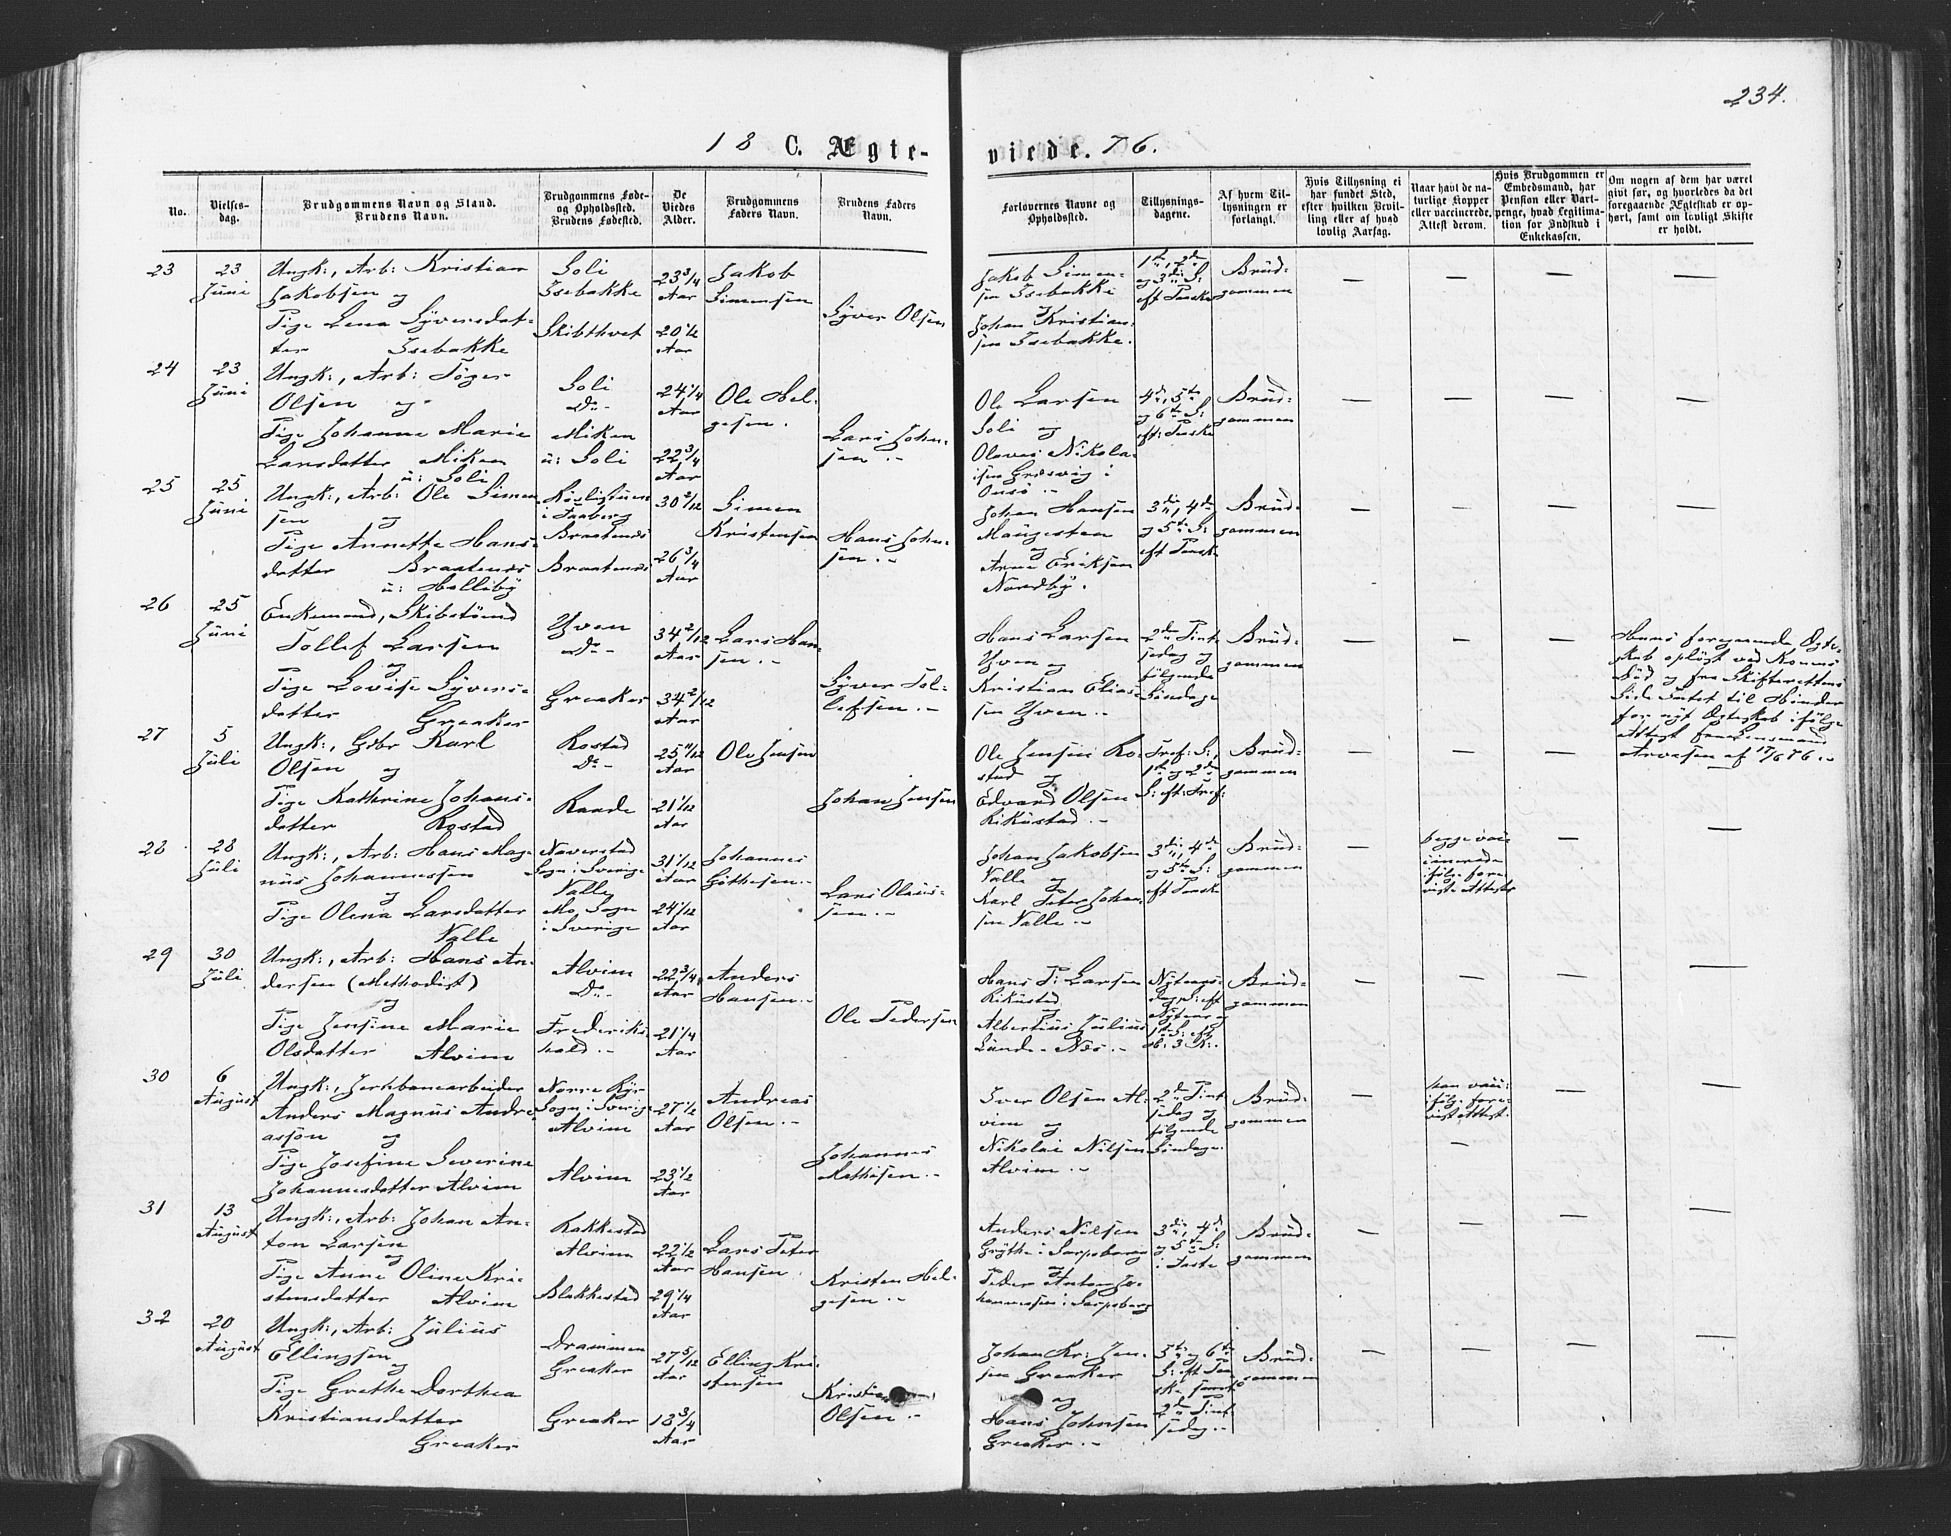 234.
18 C. Ægte-
viede. 76.
No.
Vielses-
dag.
Brudgommens Navn og Stand.
Brudens Navn.
Brudgommens Føde-
og Opholdssted.
Brudens Fødested.
De
Viedes
Alder.
Brudgommens
Faders Navn.
Brudens Faders
Navn.
Forlovernes Navne og
Opholdssted.
Tillysnings-
dagene.
Af hvem Til-
lysningen er
forlangt.
Hvis Tillysning ei
har fundet Sted,
efter hvilken Bevil-
ling eller af hvad
lovlig Aarsag.
Naar havt de na-
turlige Kopper
eller vaccinerede.
Attest derom.
Hvis Brudgommen er
Embedsmand, har
Pension eller Vart-
penge, hvad Legitima-
tion for Indskud i
Enkekassen.
Om nogen af dem har været
givt før, og hvorledes da det
foregaaende Ægteskab er op-
hørt, samt om lovligt Skifte
er holdt.
23
23
Juni
Ungk:, Arb: Kristian
Jakobsen og
Pige Lena Syversdat-
ter Isebakke
Soli
Isebakke
Skibthvet
23 3/4
Aar
20 1/2
Aar
Jakob
Simensen
Syver Olsen
Jakob Simen-
sen Isebakke
Johan Kristian-
sen Isebakke.
1ste, 2den
og 3die S:
eft Paaske
Brud-
gommen
— — — —
24
23
Juni
Ungk:, Arb:
Olsen og
Pige Johanne Marie
Larsdatter Miken
u: Soli
Soli
Do -
Miken
u: Soli
24 1/4
Aar
22 3/4
Aar
Ole Hel-
gesen.
Lars John-
sen. -
Ole Larsen
Soli og
Olavus Nikola-
isen Græsvig i
Onsø. -
4de, 5te
og 6te S:
eft: Paaske
Brud-
gommen
— — — —
25
25
Juni
Ungk:, Arb: Ole Simen-
sen og
Pige Annette Hans-
datter Braatenes
u: Helleby
i Faaberg
Braatenes
Braatenes
30 2/12
26 3/4
Aar
Simen
Kristensen
Hans John-
sen. -
Johan Hansen
Maugesten
og
Arne Eriksen
Nordby.
3die, 4de
og 5te S:
eft Paaske
Brud-
gommen
— — — —
26
25
Juni
Enkemand, Skibstømd
Tollef Larsen
og
Pige Lovise Syvers-
datter Greaker
Yven
Do -
Greaker
34 2/12
Aar
34 2/12
Aar
Lars Han-
sen. -
Syver Tol-
lefsen. -
Hans Larsen
Yven og
Kristian Elias-
sen Yven. -
2den Pint-
sedag og
følgende
Søndage
Brud-
gommen
— — —
Hans foregaaende Ægte-
skab opløst ved Konens
Død og fra Skifterettens
Side Intet til Hinder
for nyt Ægteskab ifølge
Attest fra Lensmand
Arvesen af 17/6 76. -
27
5
Juli
Ungk:, Gdbr Karl
Olsen og
Pige Kathrine Johans-
datter Rostad
Rostad
Do -
Raade
Aar
21 1/12
Aar
Ole Jensen
Johan Jensen
Ole Jensen Ro-
stad og
Edvard Olsen
Rikustad. -
Tref: S:,
1ste og 2den
S: eft: Tref:
Brud-
gommen
— — — —
28
28
Juli
Ungk:, Arb: Hans Mag-
nus Johannessen
og
Pige Olena Larsdatter
Valle
Naverstad
Sogn i Sverige
Valle
Mo Sogn
i Sverige
31 1/12
Aar
24 1/12
Aar
Johannes
Göthesen. -
Lars Olaus-
sen. -
Johan Jakobsen
Valle og
Karl Peter Johan-
sen Valle. -
3die, 4de
og 5te S:
eft Paaske
Brud-
gommen
begge vac-
cinerede
ifølge fore-
viste Attester
— —
29
30
Juli
Ungk:, Arb: Hans An-
dersen (Methodist)
og
Pige Jensine Marie
Olsdatter Alvim
Alvim
Do -
Frederiks-
hald. -
22 3/4
Aar
21 1/4
Aar
Anders
Hansen. -
Ole Pedersen
Hans P: Larsen
Rikustad
og
Albertius Julius
Lunde - Næs. -
Nytaars-
dag, S: eft
Nytaar og
1ste S: eft
H: 3 K:.
Brud-
gommen
— — — —
30
6
August
Ungk:, Jernbanearbeider
Anders Magnus Andre-
assøn og
Pige Josefine Severine
Johannesdatter Alvim
Sogn i Sverige
Alvim
Alvim
27 1/2
Aar
23 1/2
Aar
Andreas
Olsen. -
Johannes
Mathisen. -
Iver Olsen Al-
vim og
Nikolai Nilsen
Alvim. -
2den Pint-
sedag og
følgende
Søndage.
Brud-
gommen
—
han vac:
ifølge fore-
vist Attest.
—
— —
31
13
August
Ungk:, Arb: Johan An-
ton Larsen
og
Pige Anne Oline Kri-
stensdatter Alvim
Rakkestad
Alvim
Blakkestad
22 1/2
Aar
29 1/4
Aar
Lars Peter
Hansen.
Kristen Hel-
gesen. -
Anders Nilsen
Grythe i Sarpsborg
og
Peder Anton Jo-
hannessen i Sarpsborg
3die, 4de
og 5te S:
i Faste
Brud-
gommen
— — — —
32
20
August
Ungk:, Arb: Julius
Ellingsen
og
Pige Grethe Dorthea
Kristiansdatter
Greaker
Drammen
Greaker
Greaker
27 5/12
Aar
18 3/4
Aar
Elling Kri-
stensen
Kristian
Olsen. -
Johan Kr: Jen-
sen Greaker
og
Hans Johnsen
Greaker. -
5te og 6te
S: eft Paa-
ske samt
2den Pint-
sedag. -
Brud-
gommen
— — — —